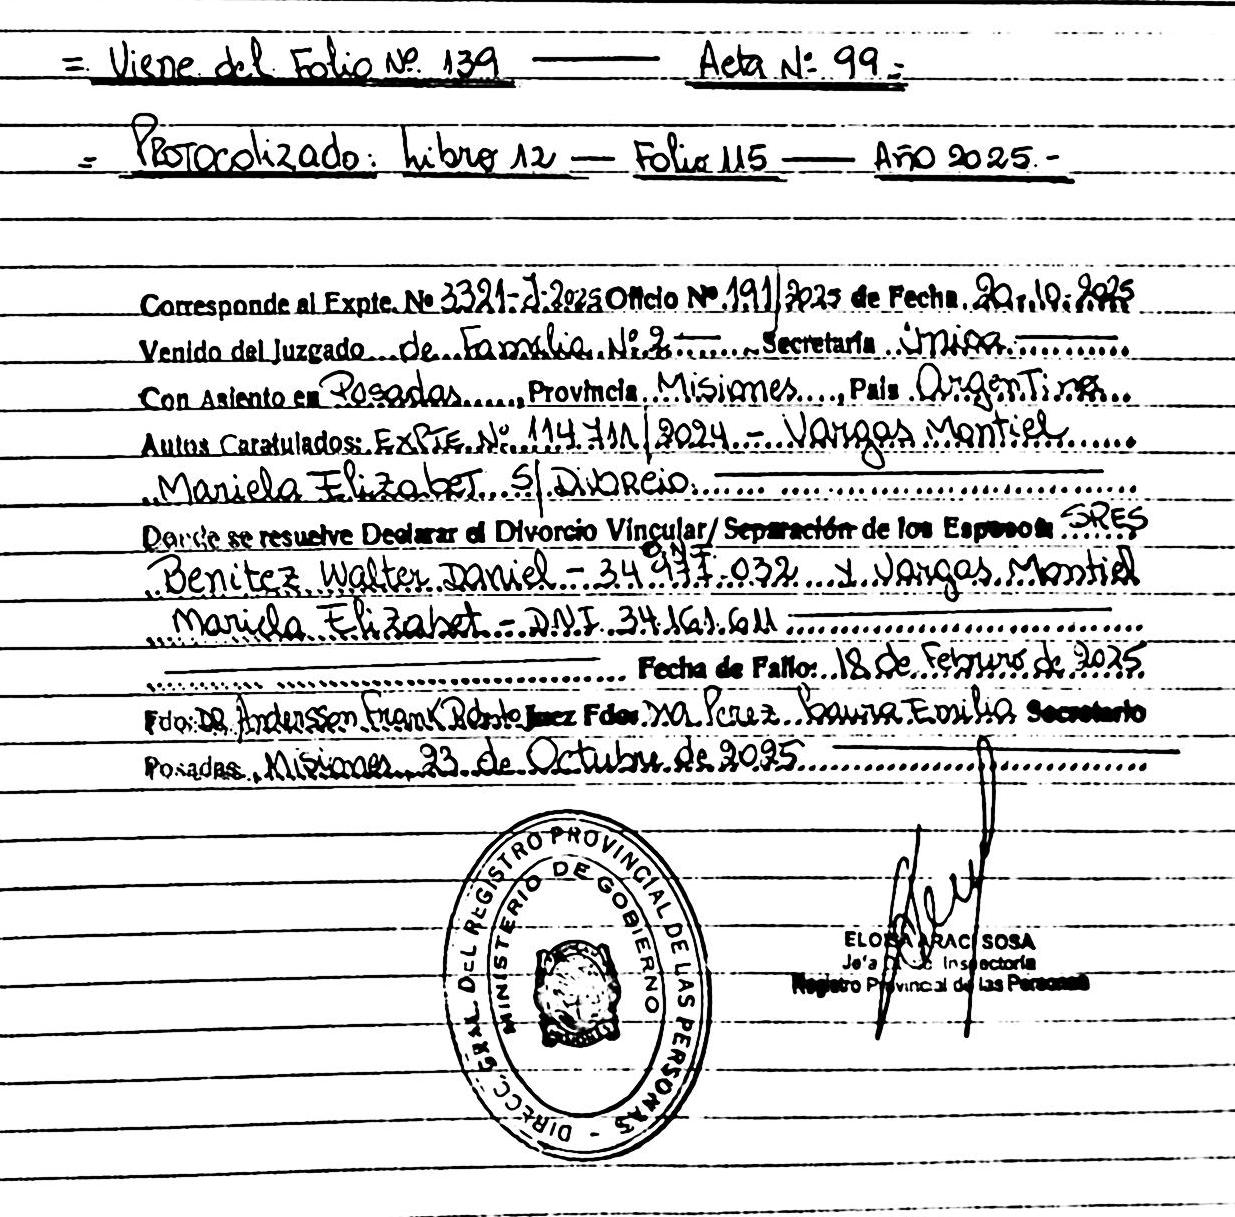 = Viene del Folio Nº 139 — Acta Nº 99 =
= Protocolizado: Libro 12 — Folio 115 — Año 2025.-
Corresponde al Expte. Nº 3321-J-2025 Oficio Nº 191/2025 de Fecha 20.10.2025
Venido del Juzgado de Familia Nº 2 — Secretaría única
Con Asiento en Posadas, Provincia Misiones, País Argentina
Autos Caratulados: EXPTE Nº 114711/2024 - Vargas Montiel
Mariela Elizabet S/ Divorcio.
Donde se resuelve Declarar el Divorcio Vincular/ Separación de los Esposos SRES
Benitez Walter Daniel - DNI 34.977.032 y Vargas Montiel
Mariela Elizabet - DNI 34.161.611
Fecha de Fallo: 18 de Febrero de 2025
Fdo: DR Anderssen Frank Roberto Juez Fdo: DRA Perez Laura Emilia Secretario
Posadas, Misiones, 23 de Octubre de 2025
DIRECC. GRAL. DEL REGISTRO PROVINCIAL DE LAS PERSONAS -
MINISTERIO DE GOBIERNO
ELOISA ARACI SOSA
Jefa Inspectoria
Registro Provincial de las Personas